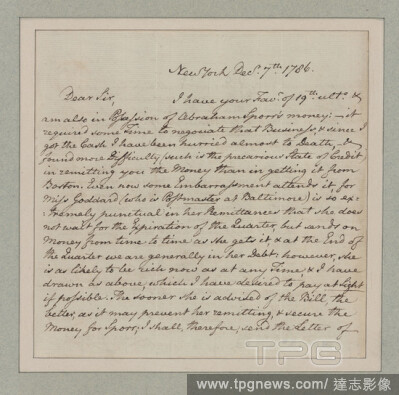 New York Decr. 7th. 1786.
Dear Sir,
I have your Favr. of 19th. ulto. &
am also in Possession of Abraham Spoor's money:—it
required some Time to negociate that Business, & since I
got the Cash I have been hurried almost to Death, &
found more Difficulty (such is the precarious State of Credit)
in remitting you the Money than in getting it from
Boston. Even now some Embarrassment attends it, for
Miss Goddard, (who is Postmaster at Baltimore) is so ex-
tremely punctual in her Remittances that she does
not wait for the Expiration of the Quarter, but sends on
Money from time to time as she gets it & at the End of
the Quarter we are generally in her Debt; however, she
is as likely to be rich now as at any Time, & I have
drawn as above, which I have desired to pay at Sight
if possible. The sooner she is advised of the Bill, the
better, as it may prevent her remitting, & secure the
Money for Spoor; I shall, therefore, send the Letter of
TPG
www.tpgnews.com / 達志影像